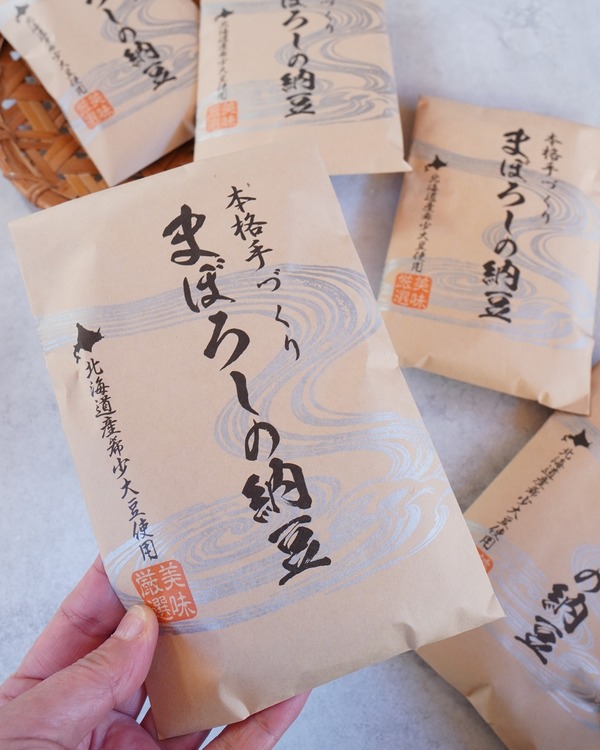 本格手づくり
まぼろしの納豆
北海道産希少大豆使用
美味
厳選
本格手づくり
まぼろしの納豆
北海道産希少大豆使用
美味
厳選
づくり
ぼろしの納豆
北海道産希少大豆使用
美味
厳選
ろしの納豆
北海道産希少大豆使用
美味
厳選
の納豆
北海道産希少大豆使用